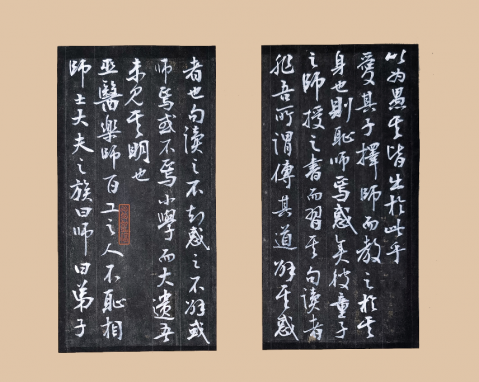 以为愚其皆出於此乎
愛其子擇師而教之於其
身也則恥師焉惑矣彼童子
之師授之書而習其句讀者
非吾所謂傳其道解其惑
者也句讀之不知惑之不解或
師焉或不焉小學而大遺吾
未見其明也
巫醫樂師百工之人不恥相
師士大夫之族曰師曰弟子